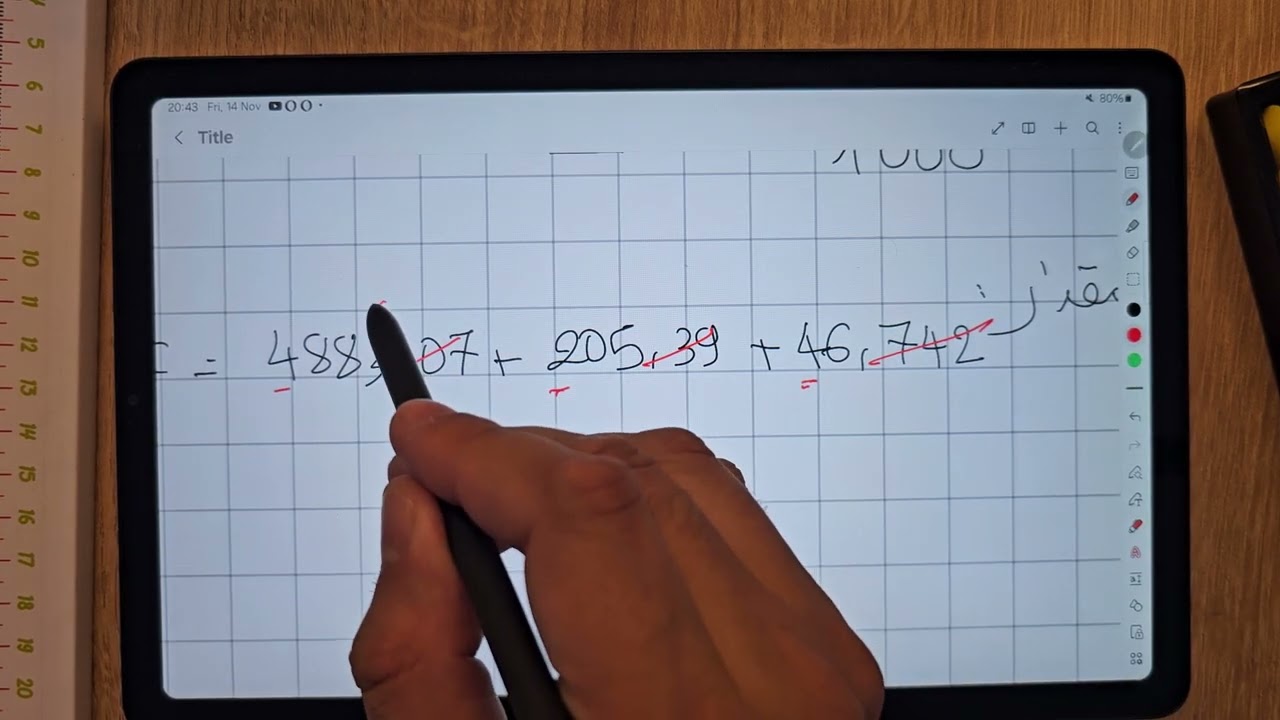 20:43 Fri, 14 Nov 80%
Title
1000
= 488,07 + 205,39 + 46,742
4
5
6
7
8
9
10
11
12
13
14
15
16
17
18
19
20